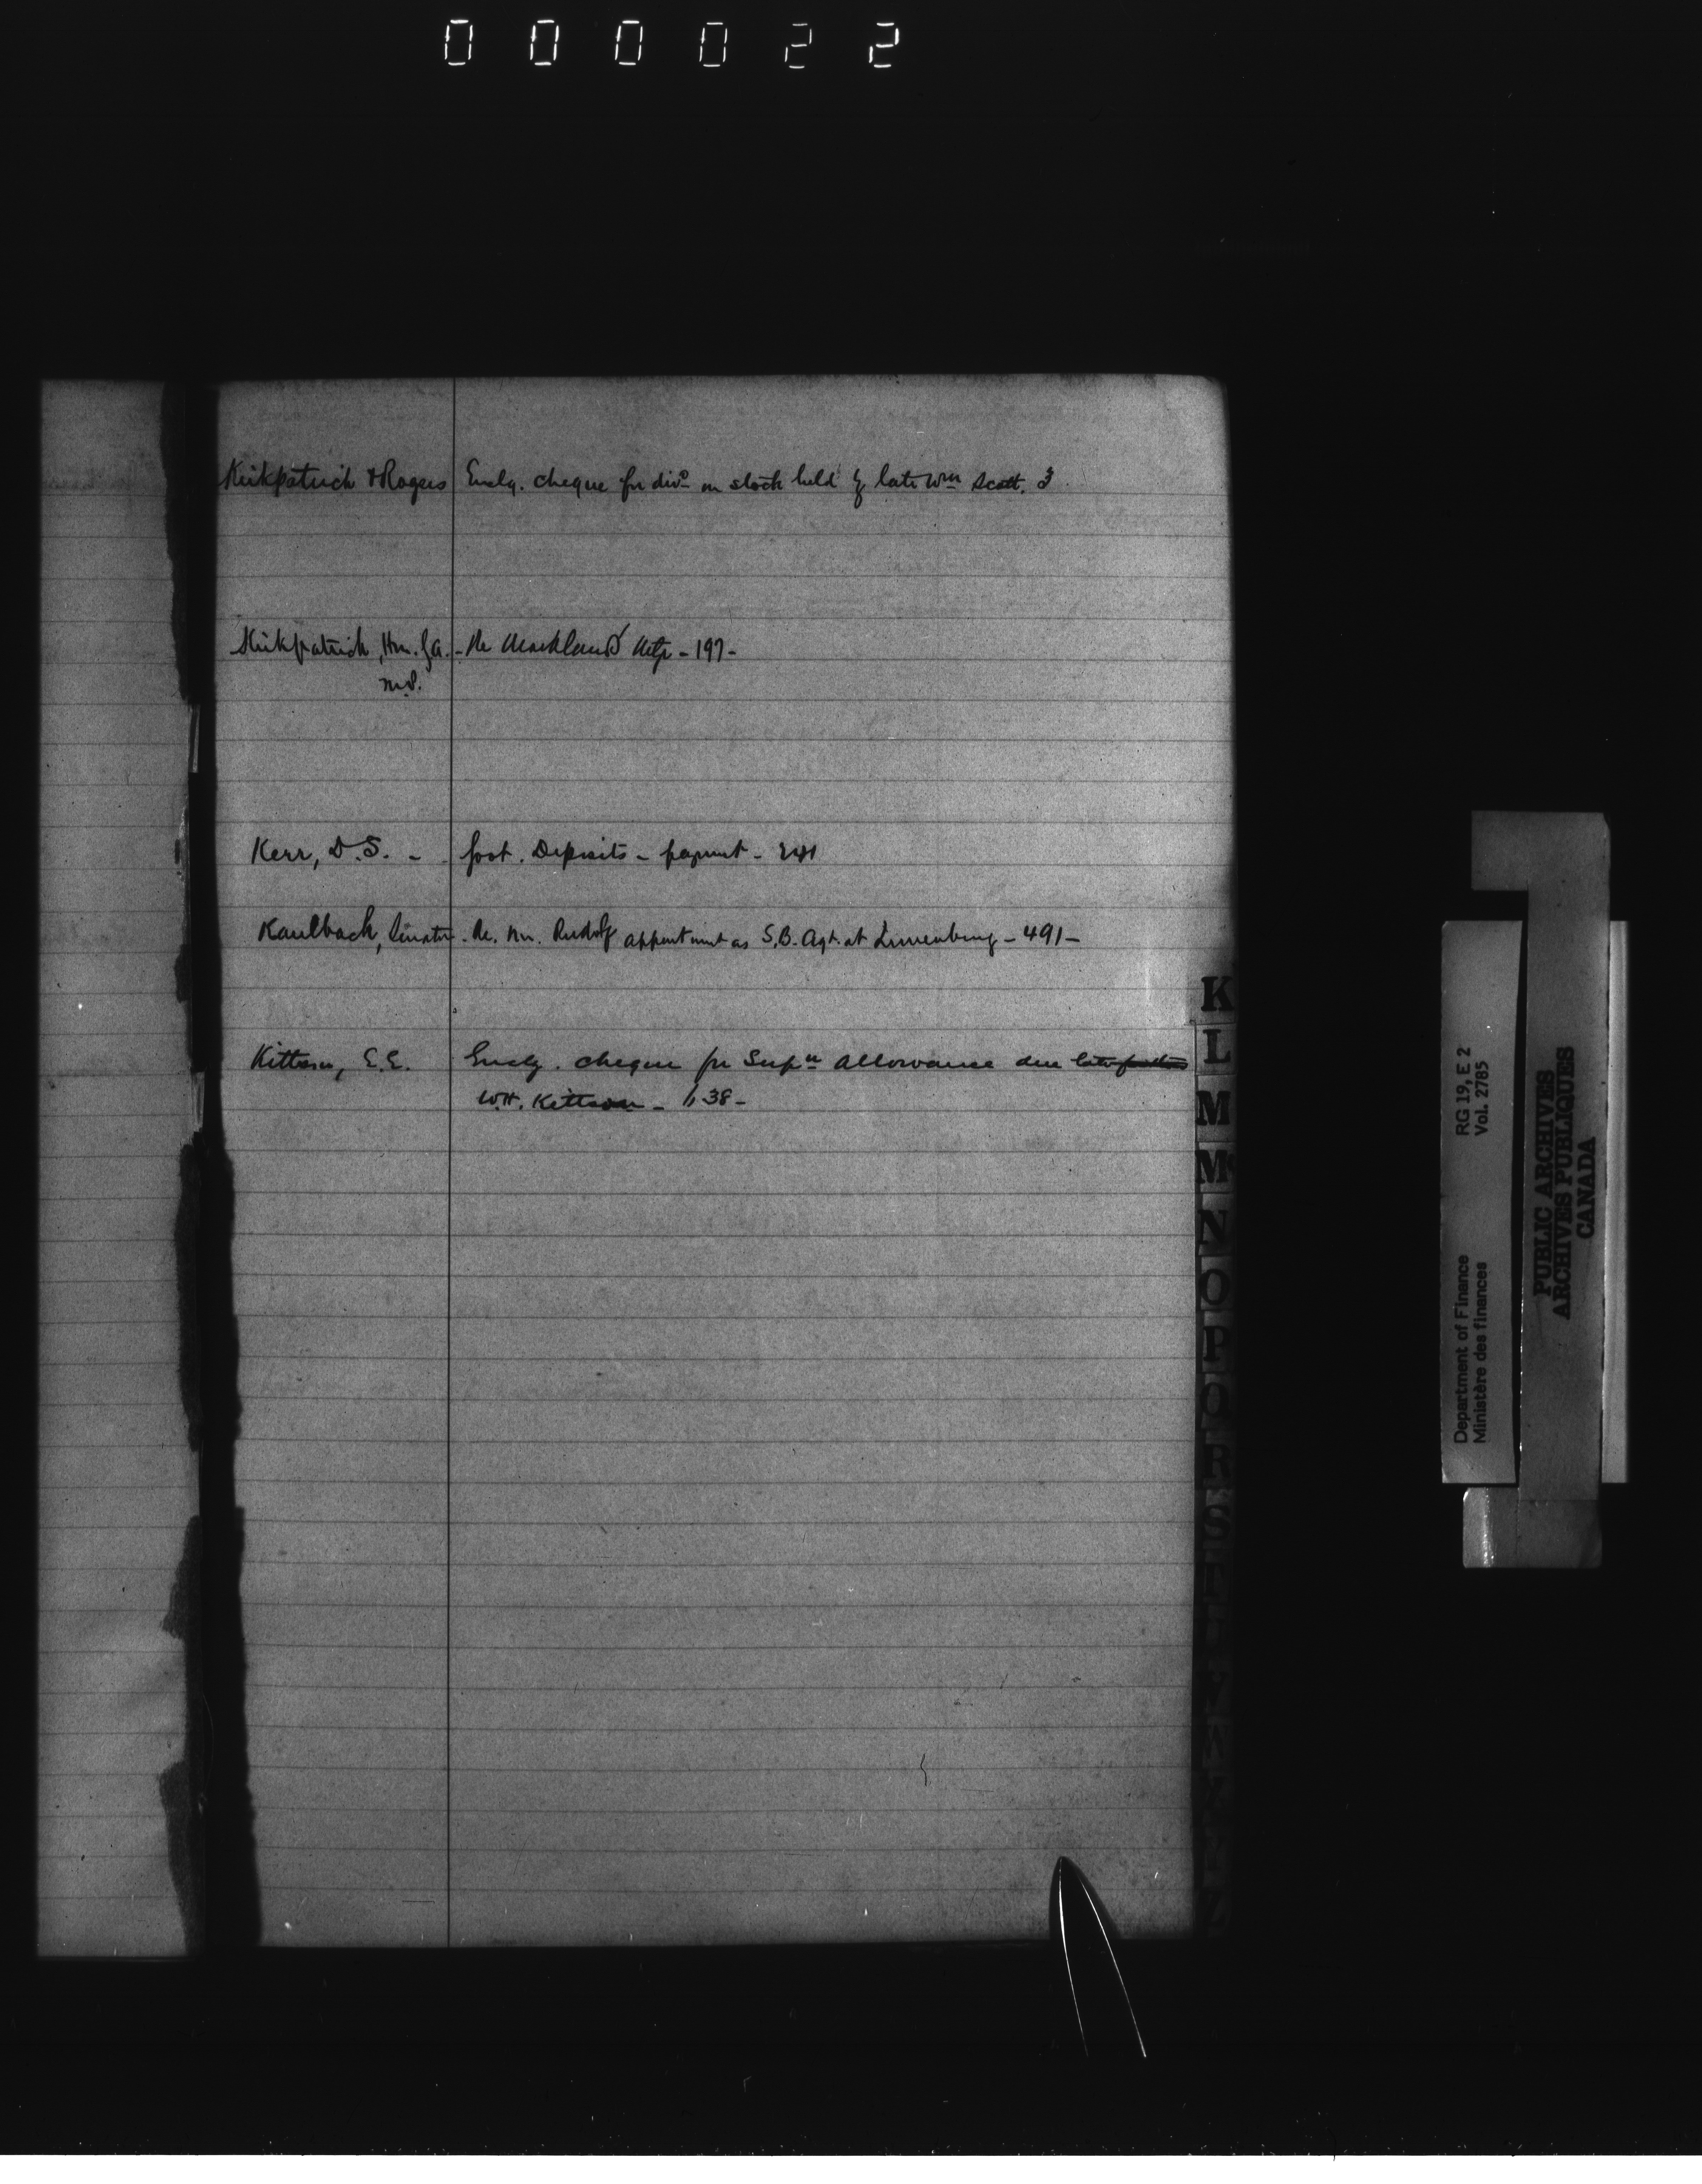 000022
Kirkpatrick & Rogers Encls. cheque for divd on stock held by late Wm Scott. 3
Kirkpatrick, Hon. G.A. - Re Markland - 197 -
M.P.
Kerr, D.S. - Govt. Deposits - payment - 241
Kaulbach, Senator - Re. Mr. Rudolf appointment as S.B. Agt. at Lunenburg - 491 -
Kittson, E.E. Enclg. cheque for Supn allowance due late father
W.H. Kittson - 638 -
K
L
M
Mc
N
O
P
Q
R
S
T
RG 19, E 2
Vol. 2785
Department of Finance
Ministère des finances
PUBLIC ARCHIVES
ARCHIVES PUBLIQUES
CANADA